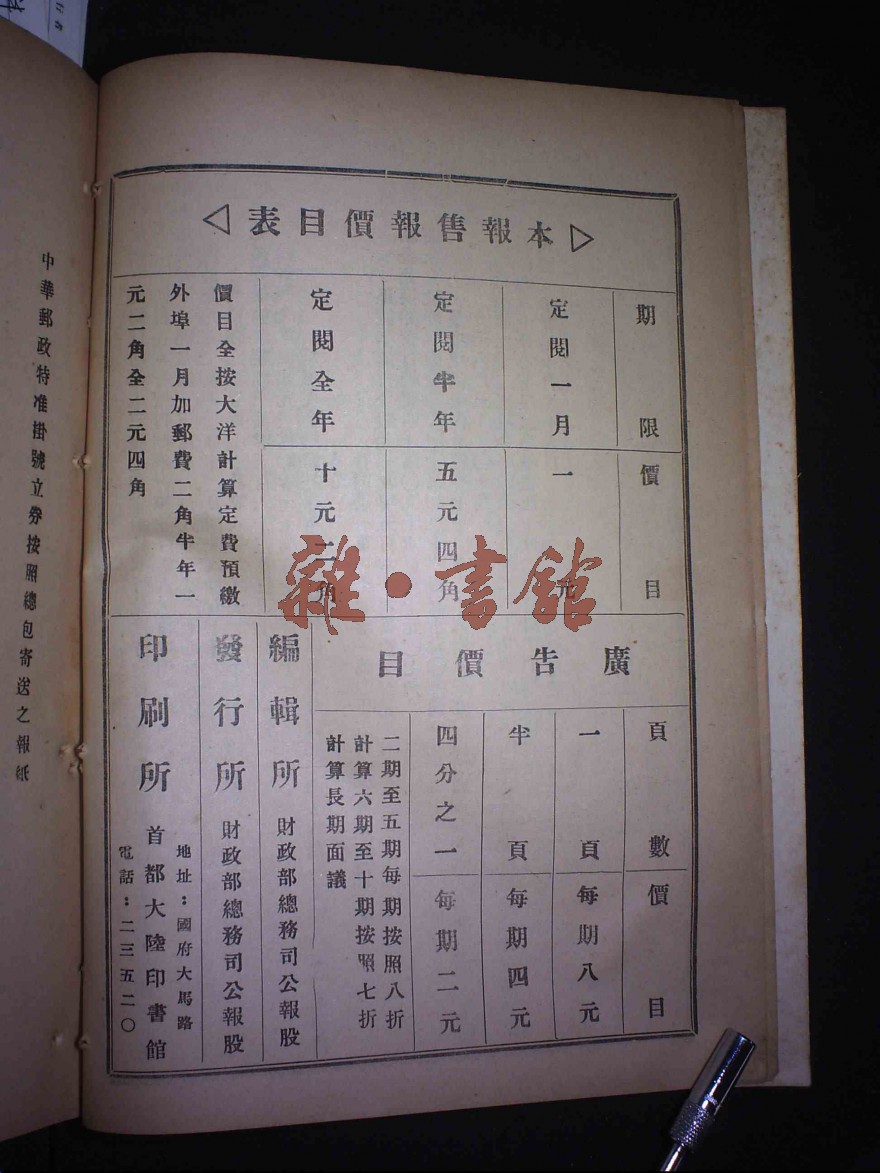 本報售報價目表
期限 價目
定閱一月 一元
定閱半年 五元四角
定閱全年 十元二角
價目全按大洋計算定費預繳
外埠一月加郵費二角半年一
元二角全二元四角
廣告價目
頁數 價目
一頁 每期八元
半頁 每期四元
四分之一 每期二元
二期至五期每期按照八折
計算六期至十期按照七折
計算長期面議
編輯所 財政部總務司公報股
發行所 財政部總務司公報股
印刷所 首都大陸印書館
地址：國府大馬路
電話：二三五二〇
中華郵政特准掛號立券按照總包寄送之報紙
雜·書館